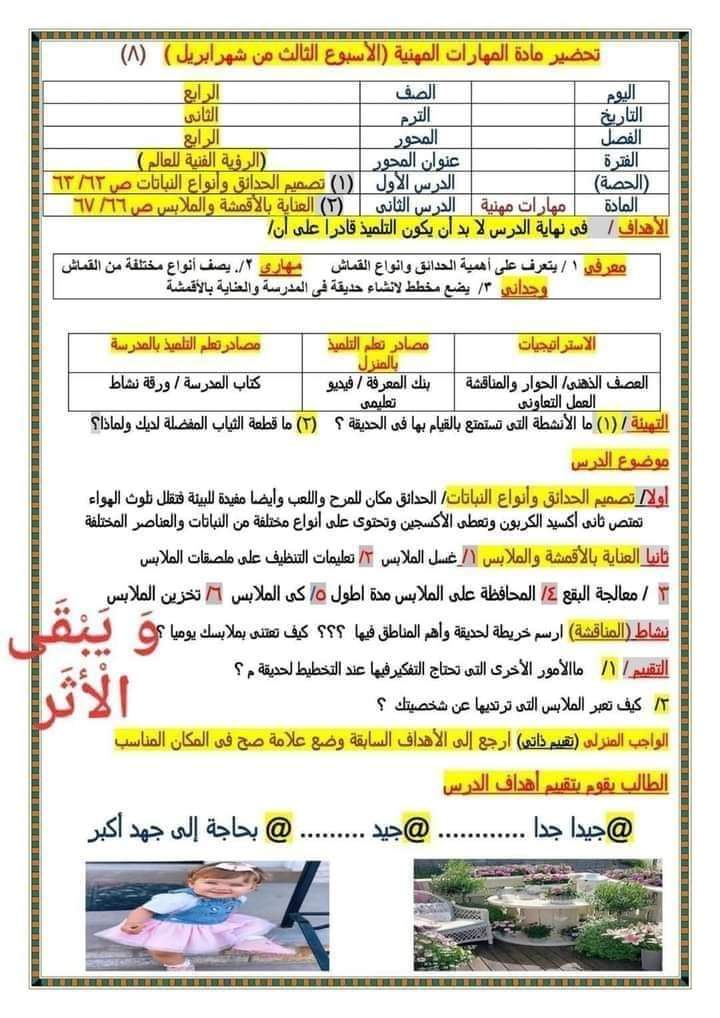 تحضير مادة المهارات المهنية (الأسبوع الثالث من شهرابريل ) (٨)
اليوم الصف الرابع
التاريخ الترم الثانى
الفصل المحور الرابع
الفترة عنوان المحور (الرؤية الفنية للعالم )
(الحصة) الدرس الأول (١) تصميم الحدائق وأنواع النباتات ص ٦٢/ ٦٣
المادة مهارات مهنية الدرس الثانى (٢) العناية بالأقمشة والملابس ص ٦٦/ ٦٧
الأهداف / فى نهاية الدرس لا بد أن يكون التلميذ قادرا على أن/
معرفي ١ / يتعرف على أهمية الحدائق وانواع القماش مهاري ٢/. يصف أنواع مختلفة من القماش
وجداني ٣/ يضع مخطط لانشاء حديقة فى المدرسة والعناية بالأقمشة
الاستراتيجيات مصادر تعلم التلميذ بالمنزل مصادرتعلم التلميذ بالمدرسة
العصف الذهنى/ الحوار والمناقشة بنك المعرفة / فيديو كتاب المدرسة / ورقة نشاط
العمل التعاونى تعليمى
التهيئة / (١) ما الأنشطة التى تستمتع بالقيام بها فى الحديقة ؟ (٢) ما قطعة الثياب المفضلة لديك ولماذا؟
موضوع الدرس
أولا/ تصميم الحدائق وأنواع النباتات/ الحدائق مكان للمرح واللعب وأيضا مفيدة للبيئة فتقلل تلوث الهواء
تمتص ثانى أكسيد الكربون وتعطى الأكسجين وتحتوى على أنواع مختلفة من النباتات والعناصر المختلفة
ثانيا العناية بالأقمشة والملابس ١/ غسل الملابس ٢/ تعليمات التنظيف على ملصقات الملابس
٣ / معالجة البقع ٤/ المحافظة على الملابس مدة اطول ٥/ كى الملابس ٦/ تخزين الملابس
نشاط (المناقشة) ارسم خريطة لحديقة وأهم المناطق فيها ؟؟؟ كيف تعتنى بملابسك يوميا ؟
التقييم / ١/ ماالأمور الأخرى التى تحتاج التفكيرفيها عند التخطيط لحديقة م ؟
٢/ كيف تعبر الملابس التى ترتديها عن شخصيتك ؟
الواجب المنزلى (تقييم ذاتي) ارجع إلى الأهداف السابقة وضع علامة صح فى المكان المناسب
الطالب يقوم بتقييم أهداف الدرس
@جيدا جدا ............ @جيد ......... @ بحاجة إلى جهد أكبر
وَ يَبْقَى
الْأَثَر